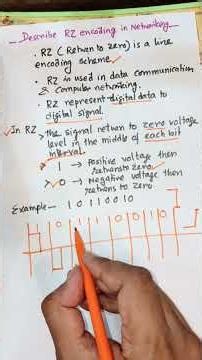 Describe RZ encoding in Networking
• RZ (Return to zero) is a line
encoding scheme.
• RZ is used in data communication
& computer networking.
• RZ represent digital data to
digital signal.
✓ In RZ, the signal return to zero voltage
level in the middle of each bit
interval.
1 → Positive voltage then
returns to zero.
0 → Negative voltage then
returns to zero
Example - 1 0 1 1 0 0 1 0
1 0 1 1 0 0 1 0